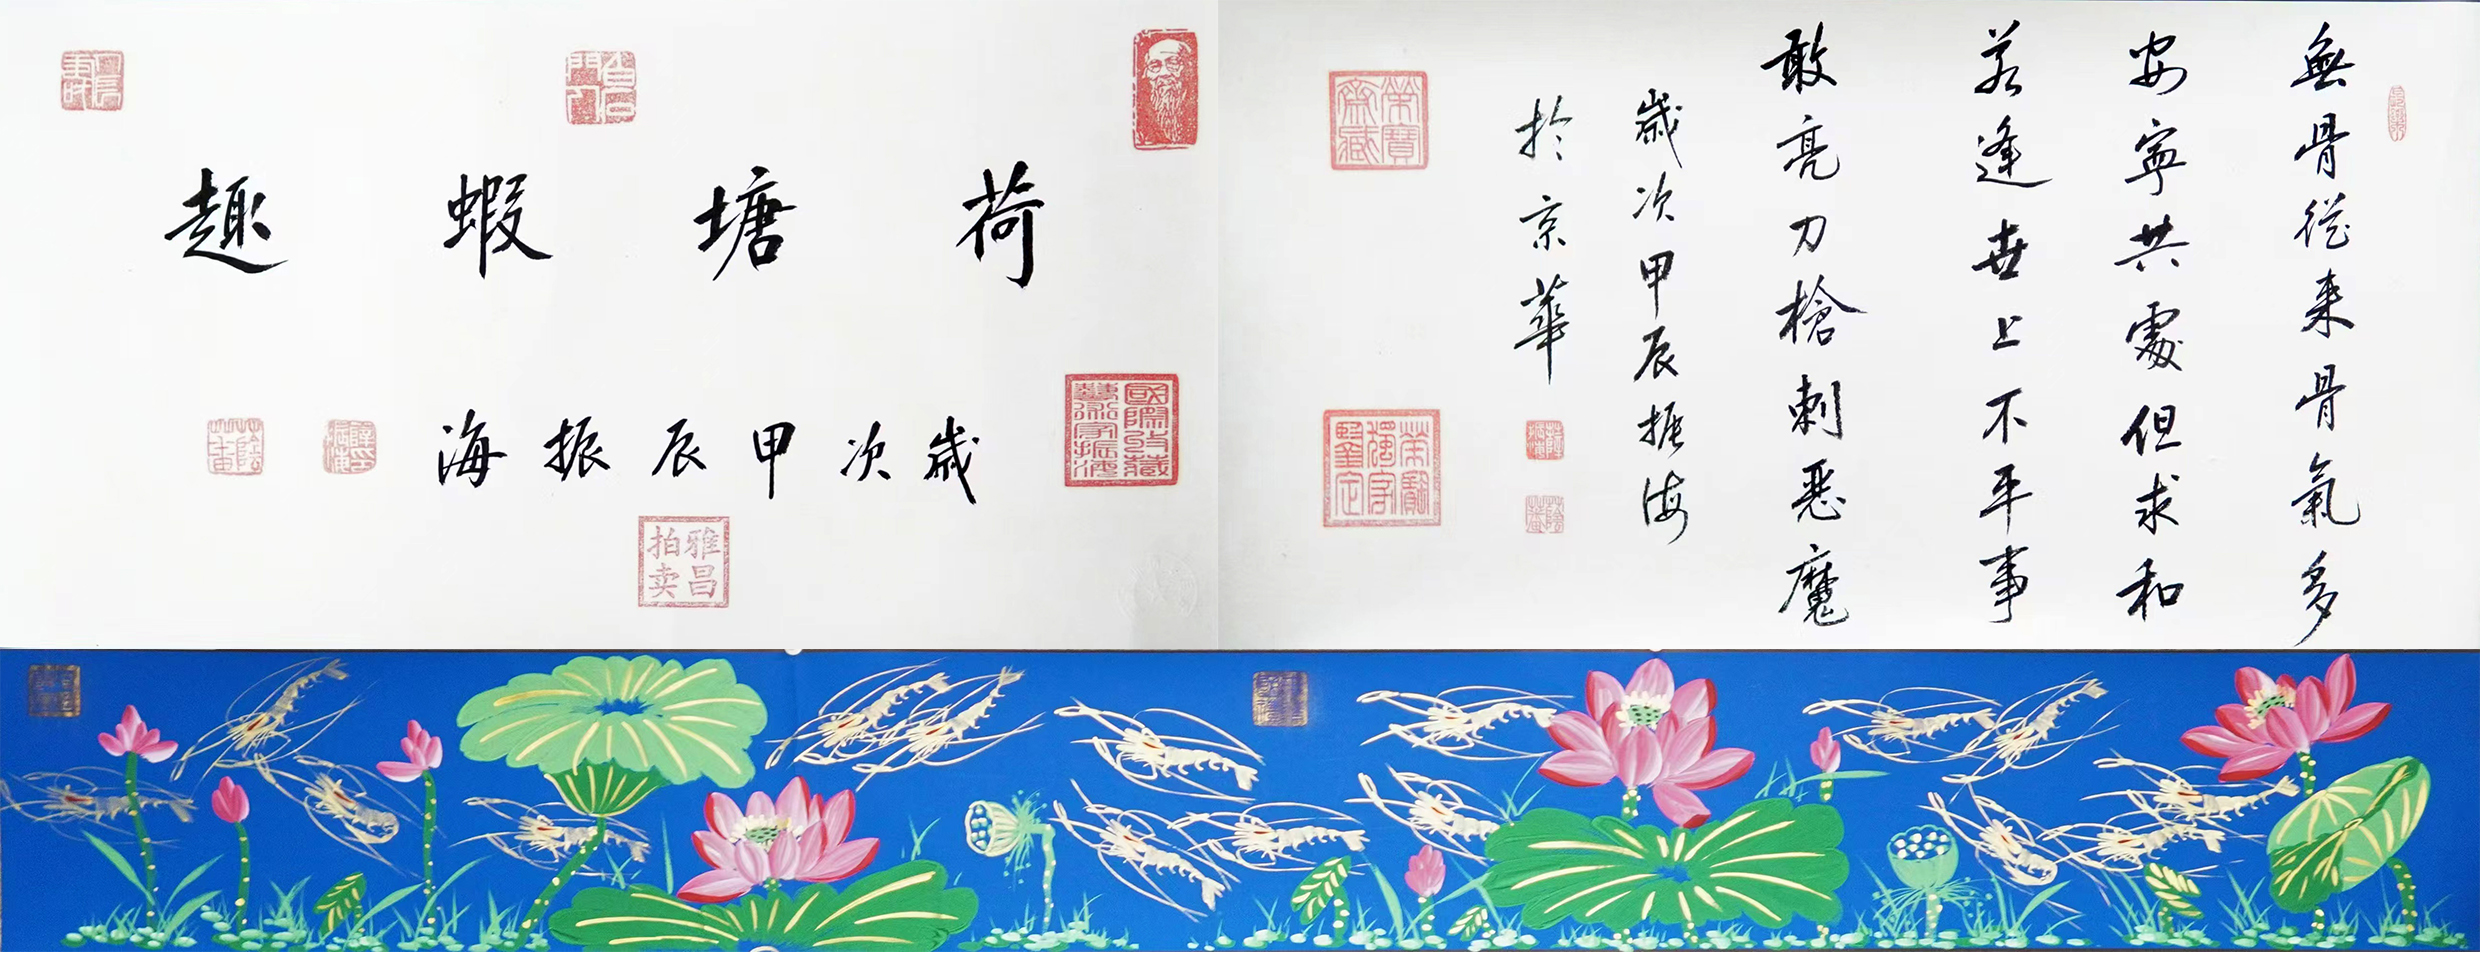 無骨從来骨氣多
安寧共處但求和
若逢世上不平事
敢亮刀槍刺惡魔
歲次甲辰振海
於京華
榮寶齋藏
榮寶獨家鑒定
荷塘蝦趣
歲次甲辰振海
雅昌拍卖